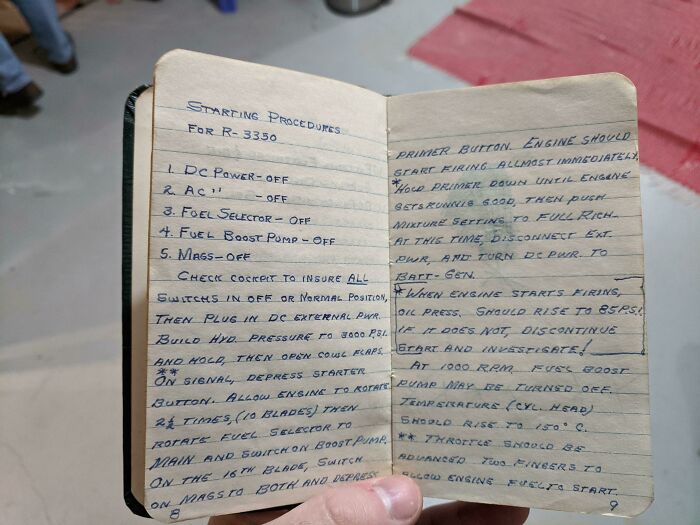 STARTING PROCEDURES
FOR R-3350
1. DC POWER-OFF
2. AC " -OFF
3. FUEL SELECTOR- OFF
4. FUEL BOOST PUMP-OFF
5. MAGS-OFF
CHECK COCKPIT TO INSURE ALL
SWITCHS IN OFF OR NORMAL POSITION,
THEN PLUG IN DC EXTERNAL PWR.
BUILD HYD. PRESSURE TO 3000 P.S.I.
AND HOLD, THEN OPEN COWL FLAPS.
**
ON SIGNAL, DEPRESS STARTER
BUTTON. ALLOW ENGINE TO ROTATE
2½ TIMES, (10 BLADES) THEN
ROTATE FUEL SELECTOR TO
MAIN AND SWITCH ON BOOST PUMP.
ON THE 16TH BLADE, SWITCH
ON MAGS TO BOTH AND DEPRESS
8
PRIMER BUTTON. ENGINE SHOULD
START FIRING ALLMOST IMMEDIATELY.
*HOLD PRIMER DOWN UNTIL ENGINE
GETS RUNNIG GOOD, THEN PUSH
MIXTURE SETTING TO FULL RICH.
AT THIS TIME, DISCONNECT EXT.
PWR, AND TURN DC PWR. TO
BATT-GEN.
*WHEN ENGINE STARTS FIRING,
OIL PRESS. SHOULD RISE TO 85 P.S.I.
IF IT DOES NOT, DISCONTINUE
START AND INVESTIGATE!
AT 1000 RPM. FUEL BOOST
PUMP MAY BE TURNED OFF.
TEMPERATURE (CYL. HEAD)
SHOULD RISE TO 150° C.
** THROTTLE SHOULD BE
ADVANCED TWO FINGERS TO
ALLOW ENGINE FUEL TO START.
9